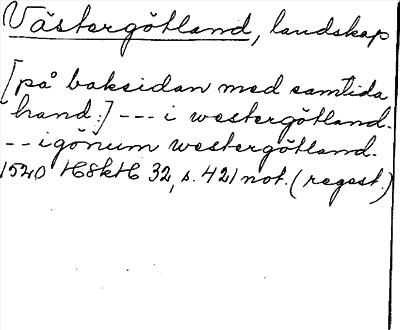 Västergötland, landskap
[på baksidan med samtida
hand:] --- i westergötland.
-- igönum westergötland.
1520 HSkH 32, s. 421 not. (regest.)